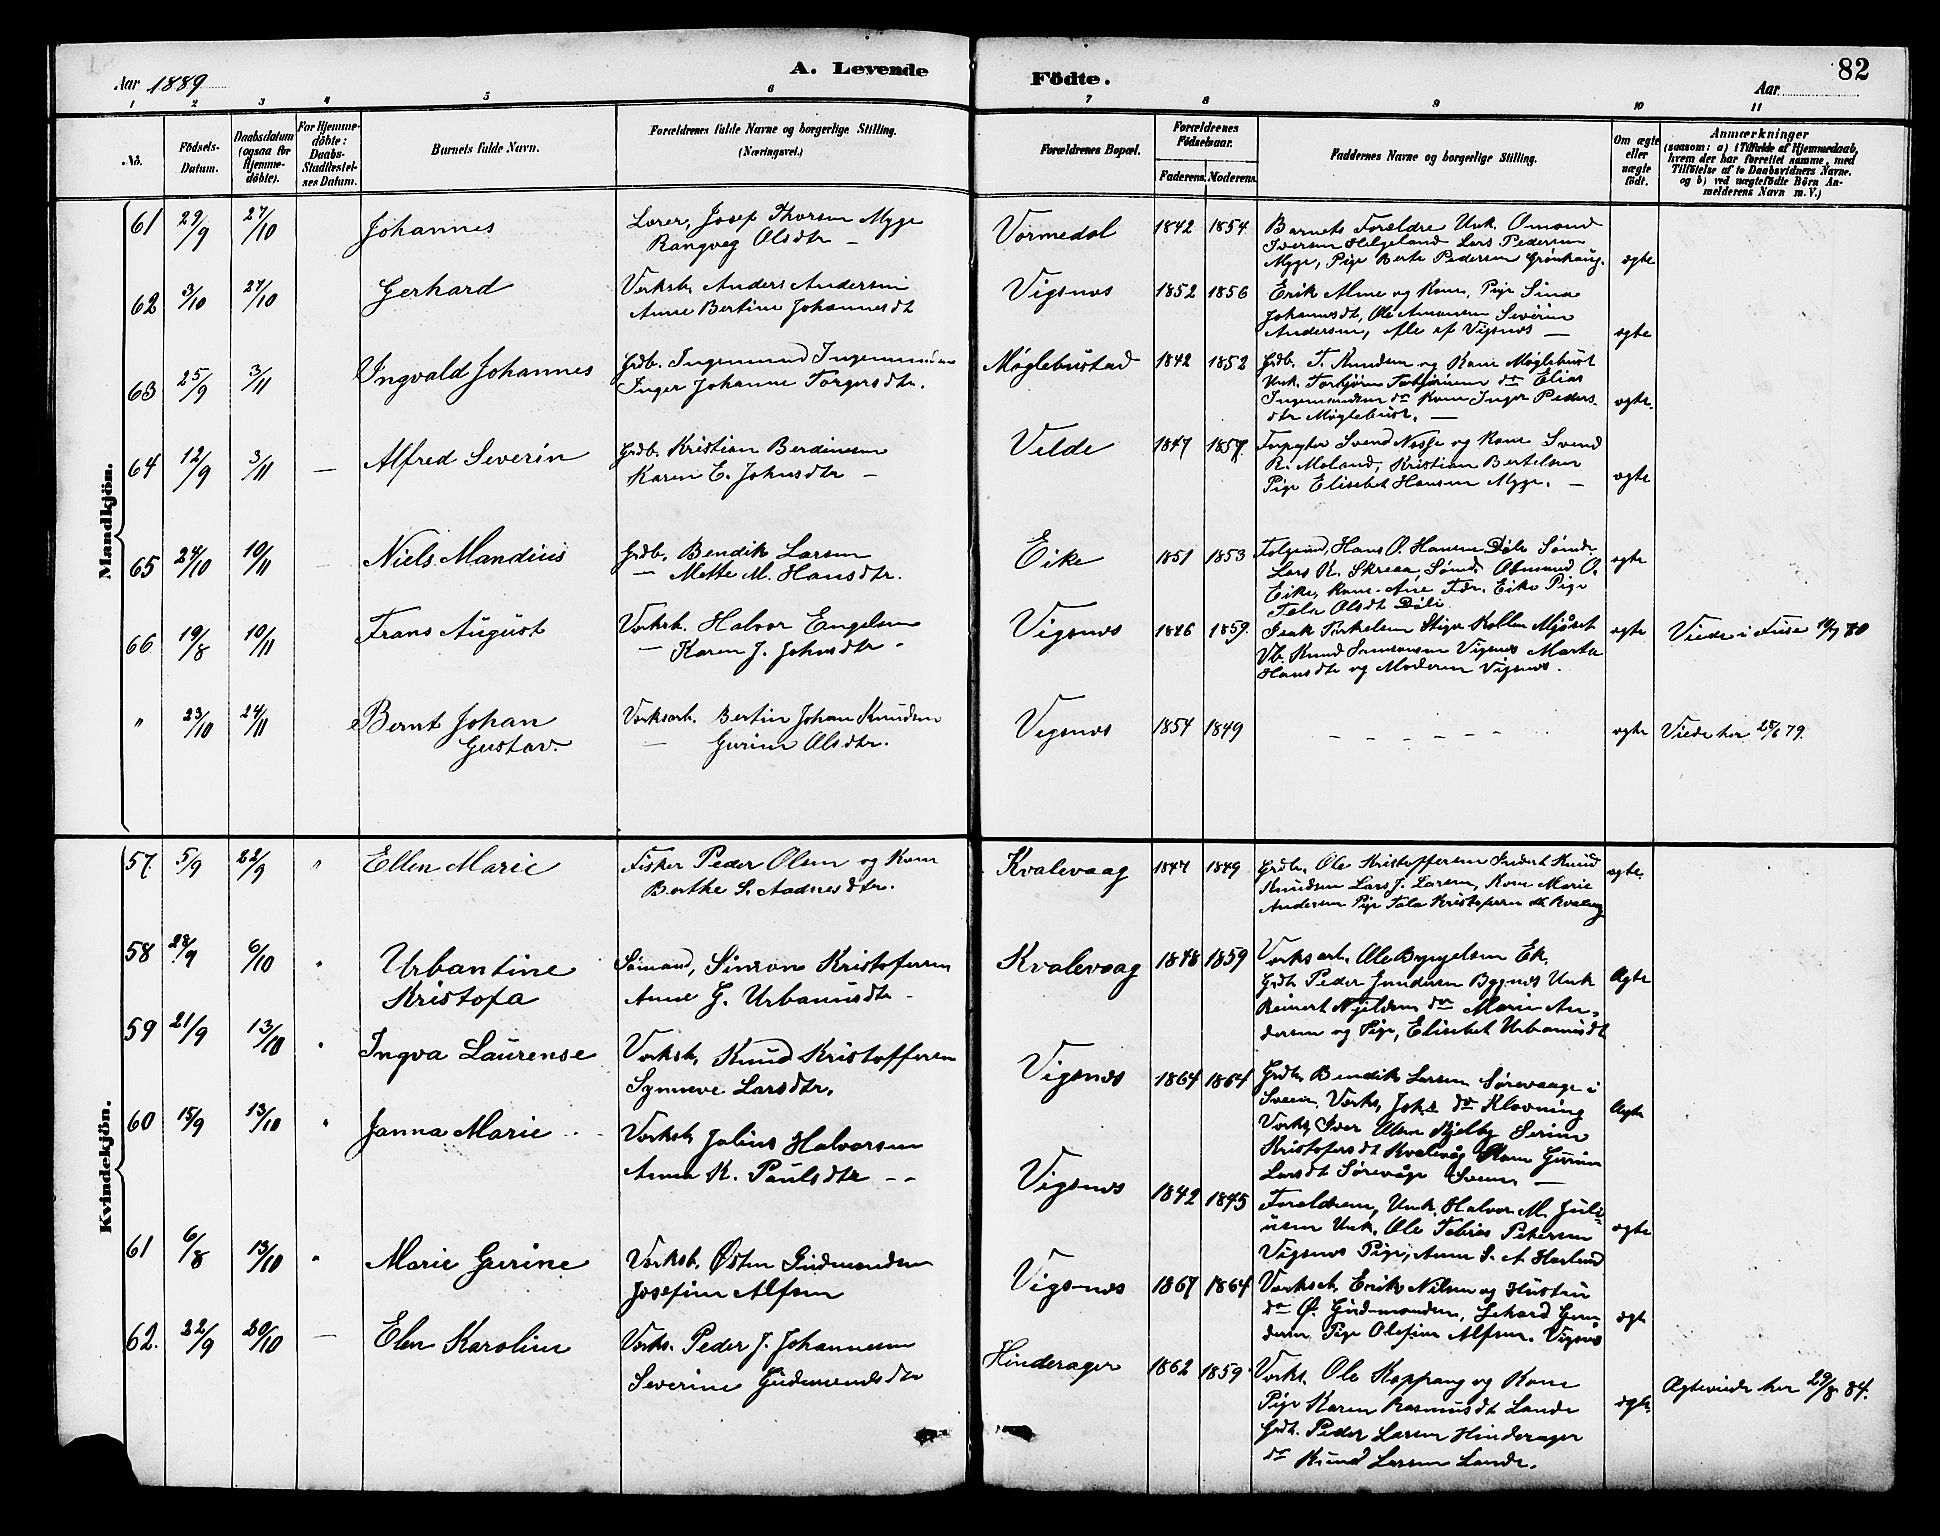 Aar 1889
A. Levende Födte.
82
Aar
1 2 3 4 5 6 7 8 9 10 11
No.
Födsels-Datum.
Daabsdatum (ogsaa for Hjemme-döbte).
For Hjemme-döbte: Daabs-Stadfæstel-ses Datum.
Barnets fulde Navn.
Forældrenes fulde Navne og borgerlige Stilling. (Næringsvei.)
Forældrenes Bopæl.
Forældrenes Födselsaar.
Faderens. Moderens.
Faddernes Navne og borgerlige Stilling.
Om ægte eller uægte födt.
Anmærkninger
(saasom: a) i Tilfælde af Hjemmedaab,
hvem der har forrettet samme, med
Tilföielse af to Daabsvidners Navne.
og b) ved uægtefödte Börn An-
melderens Navn m. V.)
Mandkjön.
61 29/9 27/10 Johannes
Lærer, Josef Thorsen Myge
Rangveg Olsdtr —
Vormedal 1842 1854
Barnets Forældre Unk. Omund
Iversen Helgeland Lars Pedersen
Myge, Pige Berte Pedersen Grønhaug. ægte
62 3/10 27/10 Gerhard
Verksb. Anders Andersen
Anne Bertine Johannesdt
Vigsnæs 1852 1856
Erik Alne og Kone, Pige Sina
Johannesdt, Ole Amonsen Severin
Andersen, alle af Vigsnæs — ægte
63 25/9 3/11 Ingvald Johannes
Grdb. Ingemund Ingemundsen
Inger Johanne Torgersdtr.
Møglebustad 1842 1852
Grdb. T. Knudsen og Kone Møglebust
Unk. Torbjørn Torbjørnsen do Elias
Ingemundsen do Kone Inger Peders-
dtr Møglebust. — ægte.
64 12/9 3/11 — Alfred Severin
Grdb. Kristian Berdinesen
Karen E. Johnsdtr —
Velde 1847 1857
Forpagter Svend Nesse og Kone Svend
R. Meland, Kristian Bertelsen
Pige Elisebet Hansen Myge. — ægte
65 24/10 10/11 — Niels Mandius
Grdb. Bendik Larsen
— Mette M. Hansdtr.
Eike 1851 1853
Hans O. Hansen Døle Sømd.
Lars K. Skreaa, Sømd. Osmund O.
Eike, Kone Ane Eike Pige
Tala Olsdt Døli ægte
66 19/8 10/11 Frans August
Verksb. Halvor Engelsen
— Karen J. Johnsdtr -
Vigsnæs 1846 1859.
Isak Torkelsen Stiger Kollen Mjøset
Vb. Knud Simonsen Vigsnæs Marta
Hansdtr og Moderen Vigsnæs. ægte
Viede i Fuse 80
" 23/10 24/11 Bernt Johan Gustav.
Verksarb. Bertin Johan Knudsen
— Gurine Olsdtr.
Vigsnæs 1854 1849 - - - - - - ægte
Viede her 28/6 79.
Kvindekjön.
57. 5/9 22/9 " Ellen Marie
Fisker Peder Olsen og Kone
Berthe S. Aadnesdtr.
Kvalevaag 1847 1849
Grdbr. Ole Kristoffersen Inderst Knud
Knudsen Lars J. Larsen, Kone Marie
Andersen Pige Tala Kristofersen Kvalevag ægte.
58 28/9 6/10 " Urbantine Kristofa
Sømand, Simon Kristofersen
Anne G. Urbanusdtr -
Kvalevaag 1848 1859
Verksarb. Ole Byggelsen Ek.
Grdb. Peder Gundersen Bygnes Unk
Reinert Njeldsen do Marie An-
dersen og Pige, Elisebet Urbanusdt Ægte
59 21/9 13/10 " Ingva Laurense
Verksb. Knud Kristoffersen
Synneve Larsdtr.
Vigsnæs 1864 1864
Grdb. Bendik Larsen Sørevaage i
Sveen, Verks. Joh.s do Kløvning
Verks. Iver Olsen Kjelby Serine
Kristofersdt Kvalevåg Kone Gurine
Larsdt Sørevåge Sveen — Ægte
60 15/9 13/10 " Janna Marie
Verksb. Julius Halvorsen
Anna K. Paulsdtr - -
Vigsnæs 1842 1845
Forældrene, Unk. Halvor M. Juli-
usen Unk. Ole Tobias Petersen
Vigsnæs Pige, Anne S. A. Havland ægte
61 6/8 13/10 " Marie Gurine
Verksb. Østen Gudmundsen
Josefine Alfsen
Vigsnæs 1867 1864
Verksarb. Erik Nilsen og Hustru
do Ø. Gudmundsen, Gerhard Gun-
dersen Pige Olefine Alfsen. Vigsnæs ægte
62. 22/9 20/10 — Elen Karoline
Verks. Peder J. Johannesen
Severine Gudmundsdtr
Hinderager 1862 1859
Verks. Ole Koppang og Kone
Pige Karen Rasmusdt Lande
Grdb. Peder Larsen Hinderager
do Knud Larsen Lande. ægte.
Ægteviede her 29/8 84.